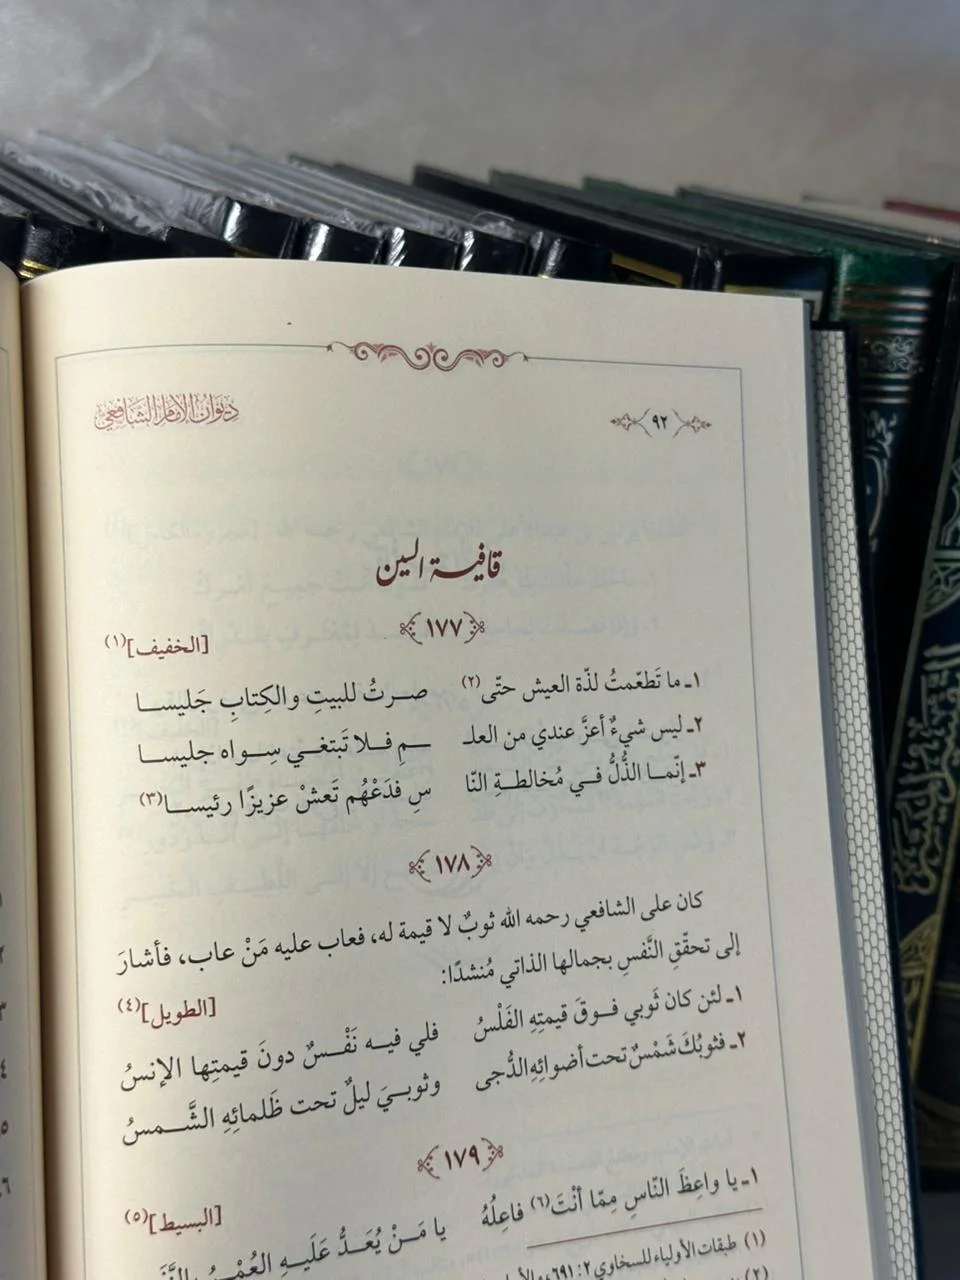 ٩٢
ديوان الإمام الشافعي
قافية السين
١٧٧
[الخفيف](١)
١ـ ما تَطعّمتُ لذّة العيش حتّى(٢) صرتُ للبيتِ والكِتابِ جَليسا
٢ـ ليس شيءٌ أعزَّ عندي من العلـ ـمِ فلا تَبتغي سِواه جليسا
٣ـ إنّما الذُّلُّ في مُخالطةِ النّا سِ فدَعْهُم تَعشْ عزيزًا رئيسا(٣)
١٧٨
كان على الشافعي رحمه الله ثوبٌ لا قيمة له، فعاب عليه مَنْ عاب، فأشارَ
إلى تحقّقِ النَّفسِ بجمالها الذاتي مُنشدًا:
[الطويل](٤)
١ـ لئن كان ثَوبي فوقَ قيمتِهِ الفَلْسُ فلي فيه نَفْسٌ دونَ قيمتِها الإنسُ
٢ـ فثوبُكَ شَمْسٌ تحت أضوائِهِ الدُّجى وثوبيَ ليلٌ تحت ظَلمائِهِ الشَّمسُ
١٧٩
[البسيط](٥)
١ـ يا واعِظَ النّاسِ مِمّا أنْتَ(٦) فاعِلُهُ يا مَنْ يُعَدُّ عَلَيهِ العُمْرُ
(١) طبقات الأولياء للسخاوي ٢: ٦٩١،
(٢)